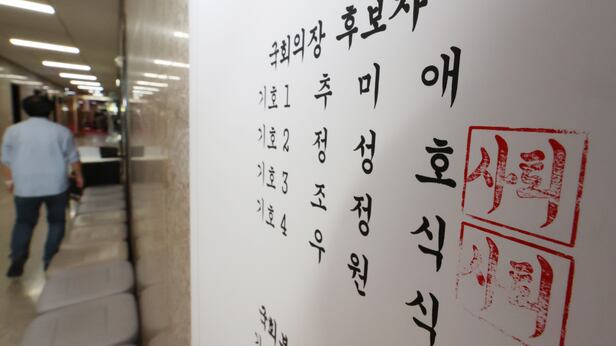 국회의장 후보자
기호1 추미애
기호2 정성호 사퇴
기호3 조정식 사퇴
기호4 우원식
국회부